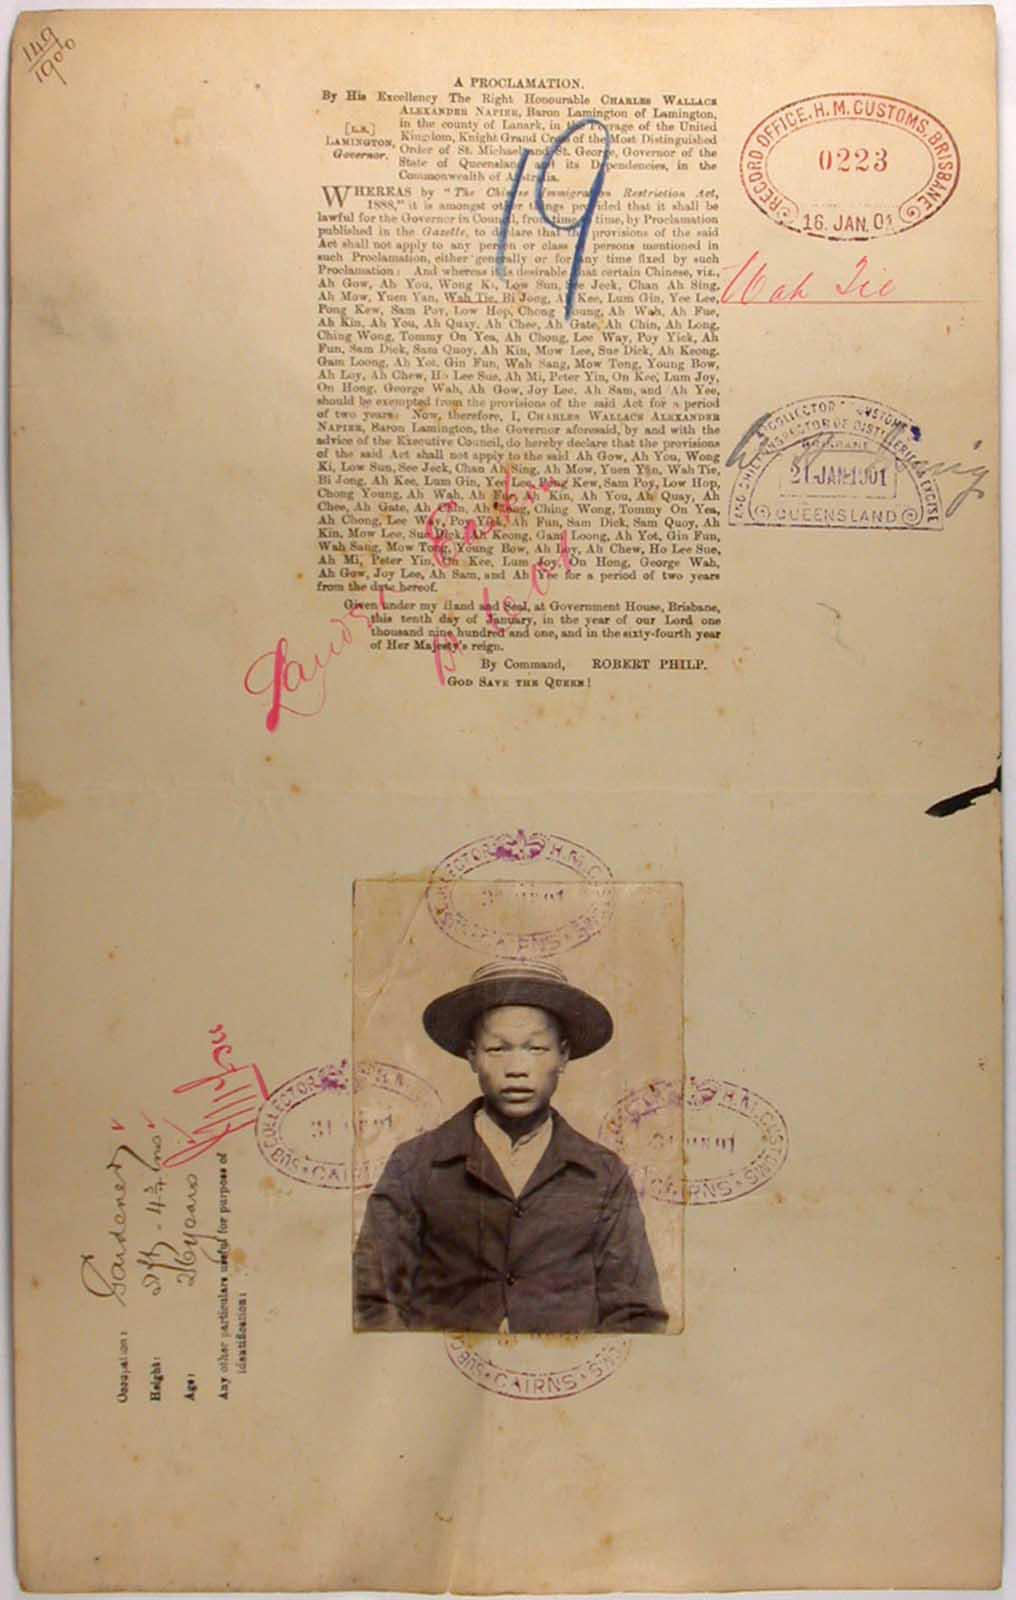 149
1900
A PROCLAMATION.
By His Excellency The Right Honourable CHARLES WALLACE
ALEXANDER NAPIER, Baron Lamington of Lamington,
in the county of Lanark, in the Peerage of the United
[L.S.]
Kingdom, Knight Grand Cross of the Most Distinguished
LAMINGTON,
Order of St. Michael and St. George, Governor of the
Governor.
State of Queensland and its Dependencies, in the
Commonwealth of Australia.
WHEREAS by "The Chinese Immigration Restriction Act,
1888," it is amongst other things provided that it shall be
lawful for the Governor in Council, from time to time, by Proclamation
published in the Gazette, to declare that the provisions of the said
Act shall not apply to any person or class of persons mentioned in
such Proclamation, either generally or for any time fixed by such
Proclamation: And whereas it is desirable that certain Chinese, viz.,
Ah Gow, Ah You, Wong Ki, Low Sun, See Jeck, Chan Ah Sing,
Ah Mow, Yuen Yan, Wah Tie, Bi Jong, Ah Kee, Lum Gin, Yee Lee,
Pong Kew, Sam Poy, Low Hop, Chong Young, Ah Wah, Ah Fue,
Ah Kin, Ah You, Ah Quay, Ah Chee, Ah Gate, Ah Chin, Ah Long,
Ching Wong, Tommy On Yea, Ah Chong, Lee Way, Poy Yick, Ah
Fun, Sam Dick, Sam Quoy, Ah Kin, Mow Lee, Sue Dick, Ah Keong,
Gam Loong, Ah Yot, Gin Fun, Wah Sang, Mow Tong, Young Bow,
Ah Loy, Ah Chew, Ho Lee Sue, Ah Mi, Peter Yin, On Kee, Lum Joy,
On Hong, George Wah, Ah Gow, Joy Lee, Ah Sam, and Ah Yee,
should be exempted from the provisions of the said Act for a period
of two years: Now, therefore, I, CHARLES WALLACE ALEXANDER
NAPIER, Baron Lamington, the Governor aforesaid, by and with the
advice of the Executive Council, do hereby declare that the provisions
of the said Act shall not apply to the said Ah Gow, Ah You, Wong
Ki, Low Sun, See Jeck, Chan Ah Sing, Ah Mow, Yuen Yan, Wah Tie,
Bi Jong, Ah Kee, Lum Gin, Yee Lee, Pong Kew, Sam Poy, Low Hop,
Chong Young, Ah Wah, Ah Fue, Ah Kin, Ah You, Ah Quay, Ah
Chee, Ah Gate, Ah Chin, Ah Long, Ching Wong, Tommy On Yea,
Ah Chong, Lee Way, Poy Yick, Ah Fun, Sam Dick, Sam Quoy, Ah
Kin, Mow Lee, Sue Dick, Ah Keong, Gam Loong, Ah Yot, Gin Fun,
Wah Sang, Mow Tong, Young Bow, Ah Loy, Ah Chew, Ho Lee Sue,
Ah Mi, Peter Yin, On Kee, Lum Joy, On Hong, George Wah,
Ah Gow, Joy Lee, Ah Sam, and Ah Yee for a period of two years
from the date hereof.
Given under my Hand and Seal, at Government House, Brisbane,
this tenth day of January, in the year of our Lord one
thousand nine hundred and one, and in the sixty-fourth year
of Her Majesty's reign.
By Command, ROBERT PHILP.
GOD SAVE THE QUEEN!
19
RECORD OFFICE, H. M. CUSTOMS, BRISBANE
0223
16. JAN. 01
Wah Tie
COLLECTOR OF CUSTOMS
AND CHIEF INSPECTOR OF DISTILLERIES & EXCISE
BRISBANE
21-JAN-1901
QUEENSLAND
SUB COLLECTOR H.M. CUSTOMS
CAIRNS
SUB COLLECTOR H.M.
CAIRNS
H.M. CUSTOMS
CAIRNS
SUB
CAIRNS
Occupation: Gardener
Height: 5ft - 4 3/4 ins
Age: 26 years
Any other particulars useful for purpose of
identification: